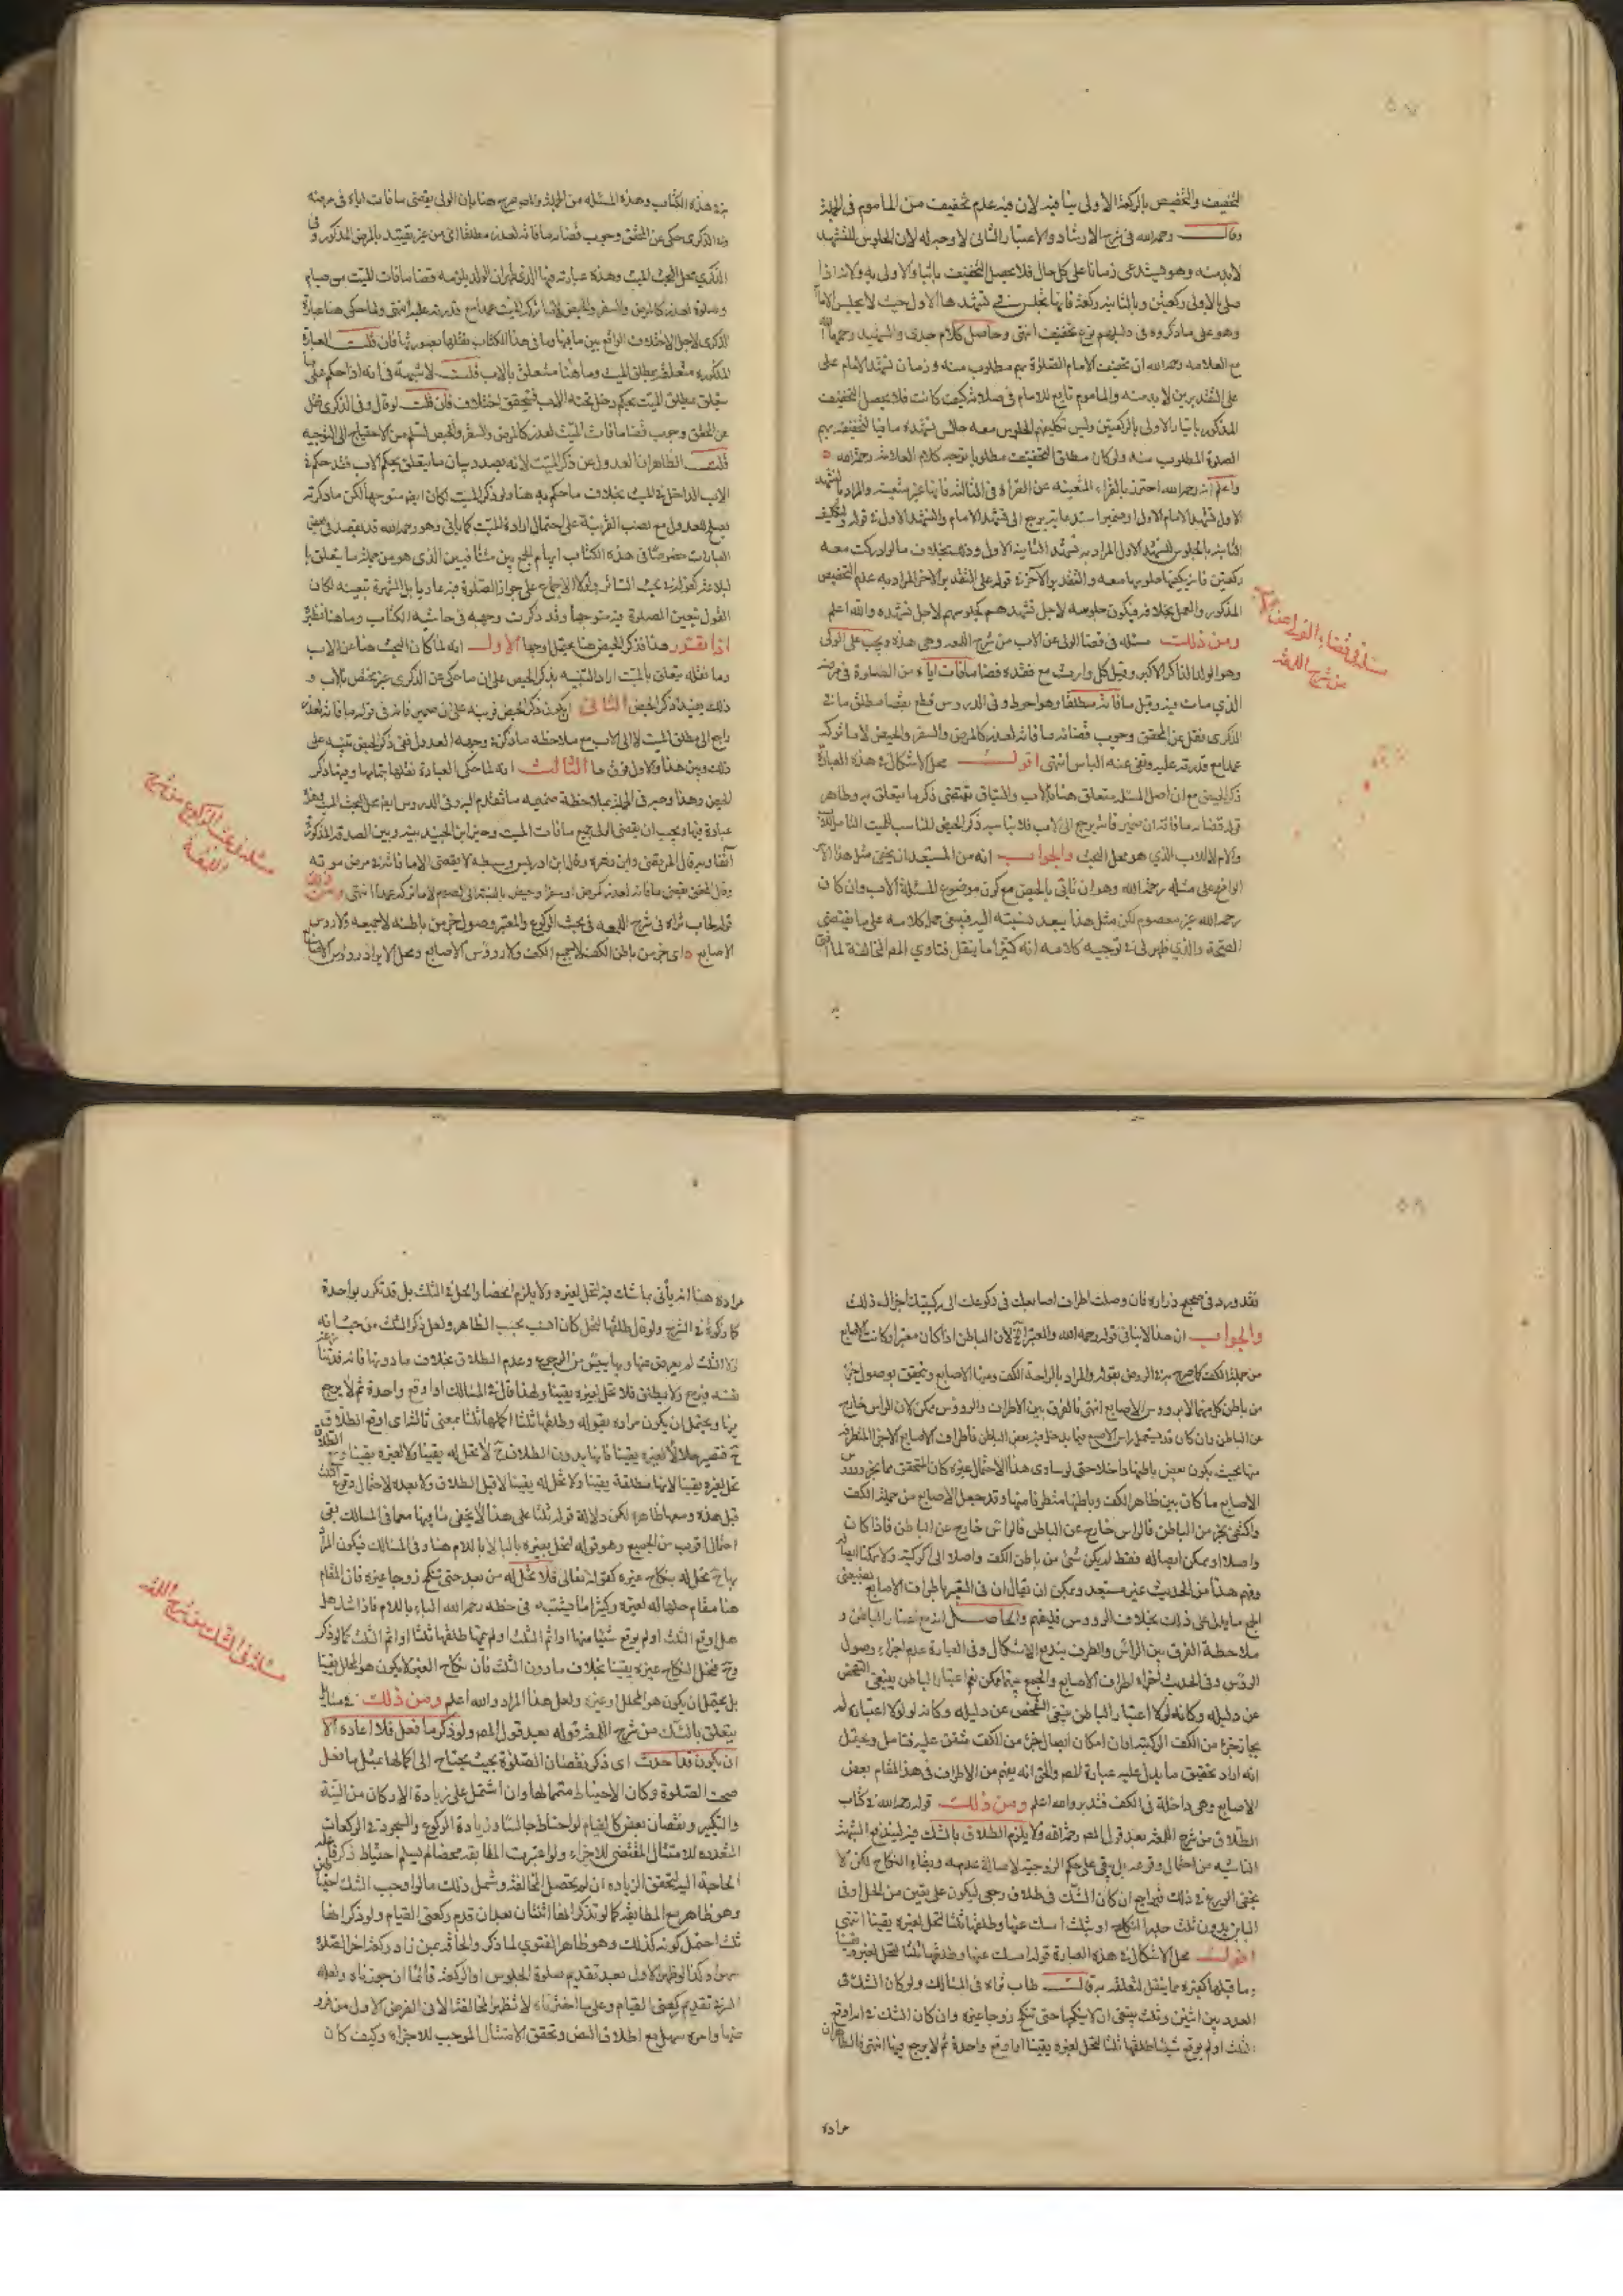 التخفيف والتخصيص بالركعة الاولى ينافيه لان فيه عدم تخفيف من الماموم في الجملة
وقال رحمه الله في شرح الارشاد والاعتبار الثاني لا وجه له لان الجلوس للتشهد
لا بد منه وهو يستدعي زمانا على كل حال فلا يحصل التخفيف بايثار الاولى به ولانه اذا
صلى بالاولى ركعتين وبالثانية ركعة فانها تجلس في تشهدها الاول حيث لا يجلس
وهو على ما ذكروه في دليلهم نوع تخفيف انتهى وحاصل كلام جدي والشهيد رحمهما الله
مع العلامة رحمه الله ان تخفيف الامام الصلوة بهم مطلوب منه وزمان تشهد الامام على
على التقديرين لا بد منه والماموم تابع للامام في صلاته كيف كانت فلا يحصل التخفيف
المذكور بايثار الاولى بالركعتين وليس تكليفهم الجلوس معه حالتي تشهده منافيا لتخفيفه بهم
الصلوة المطلوب منه ولو كان مطلق التخفيف مطلوبا توجه كلام العلامة رحمه الله
واعلم انه رحمه الله احترز بالقراءة المتعينة عن القراة في الثالثة فانها غير متعينة والمراد بالتشهد
الاول تشهد الامام الاول وضمير استدعائه يرجع الى تشهد الامام والتشهد الاول في قوله ولتكليف
الثانية بالجلوس للتشهد الاول المراد به تشهد الثانية الاول وذلك بخلاف ما لو ادركت معه
ركعتين فانه يكفيها جلوسها معه والتقدير الآخر في قوله على التقدير الآخر المراد به عدم التخصيص
المذكور والعمل بخلافه فيكون جلوسه لاجل تشهدهم كجلوسهم لاجل تشهده والله اعلم
ومن ذلك مسئلة في قضا الولي عن الاب من شرح اللمعة وهي هذه ويجب على الولي
وهو الولد الذكر الاكبر وقيل كل وارث مع فقده قضا ما فات اباه من الصلوة في مرضه
الذي مات فيه وقيل ما فاته مطلقا وهو احوط وفي الدروس قطع بقضا مطلق ما فاته وفي
الذكرى نقل عن المحقق وجوب قضائه ما فاته لعذر كالمرض والسفر والحيض لا ما تركه
عمدا مع قدرته عليه ونفى عنه الباس انتهى اقول محل الاشكال في هذه العبارة
ذكر الحيض مع ان اصل المسئلة متعلق هنا بالاب والسياق تقتضي ذكر ما يتعلق به وظاهر
قوله قضائه ما فاته ان ضمير فاته يرجع الى الاب فلا يناسبه ذكر الحيض المناسب للميت الشامل للاب
والام لا للاب الذي هو محل البحث والجواب انه من المستبعد ان يخفى مثل هذا الامر
الواضح على مثله رحمه الله وهو ان ناتي بالحيض مع كون موضوع المسئلة الاب وان كان
رحمه الله غير معصوم لكن مثل هذا يبعد نسبته اليه فينبغي حمل كلامه على ما يقتضي
الصحة والذي ظهر لي في توجيه كلامه انه كثيرا ما ينقل فتاوي المص المخالفة لما افتى
به
مسئلة في قضاء الولي
من شرح اللمعة
به في هذا الكتاب وهذه المسئلة من الجملة والمص صرح هنا بان الولي يقضي ما فات اباه في مرضه
وفي الذكرى حكى عن المحقق وجوب قضائه ما فاته لعذر مطلقا اي من غير تقييد بالمرض المذكور وفي
الذكرى محل البحث الميت وهذه عبارته فيها الذي ظهر ان الولد يلزمه قضا ما فات الميت من صيام
وصلوة لعذر كالمرض والسفر والحيض لا ما تركه الميت عمدا مع قدرته عليه انتهى ولما حكى هنا عبارة
الذكرى لاجل الاختلاف الواقع بين ما فيها وما في هذا الكتاب نقلها بصورتها فان قلت العبارة
المذكورة متعلقة بمطلق الميت وما هنا متعلق بالاب قلت لا شبهة في انه اذا حكم على ما
يتعلق بمطلق الميت بحكم دخل تحته الاب فيتحقق اختلاف فان قلت لو قال وفي الذكرى نقل
عن المحقق وجوب قضا ما فات الميت لعذر كالمرض والسفر والحيض لسلم من الاحتياج الى التوجيه
قلت الظاهر ان العدول عن ذكر الميت لانه بصدد بيان ما يتعلق بحكم الاب فقد حكم في
الاب الداخل في الميت بخلاف ما حكم به هنا ولو ذكر الميت لكان ايضا متوجها لكن ما ذكرته
يصلح للعدول مع نصب القرينة على احتمال ارادة الميت كما ياتي وهو رحمه الله قد يقصد في بعض
العبارات خصوصا في هذه الكتاب ايهام الجمع بين متنافيين الذي هو من جملة ما يتعلق با
لبلاغة كقوله في بحث الستائر ولولا الاجماع على جواز الصلوة فيه عاديا بل الشهرة تبعينه لكان
القول بتعين الصلوة فيه متوجها وقد ذكرت وجهه في حاشية الكتاب وما هنا نظيره
اذا تقرر هذا فذكر الحيض هنا يحتمل اوجها الاول انه لما كان البحث هنا عن الاب
وما نقله يتعلق بالميت اراد التنبيه بذكر الحيض على ان ما حكى عن الذكرى غير مختص بالاب و
ذلك يفيد ذكر الحيض الثاني ان يكون ذكر الحيض قرينة على ان ضمير فاته في قوله ما فاته لعذر
راجع الى مطلق الميت لا الى الاب مع ملاحظة ما ذكرته وجهه العدول ففي ذكر الحيض تنبيه على
ذلك وبين هذا والاول فرق ما الثالث انه لما حكى العبارة نقلها بتمامها وفيها ذكر
الحيض وهذا وجيه في الجملة بملاحظة صحيحة ما تقدم اليه وفي الدروس ايضا محل البحث الميت وهذه
عبارة فيها ويجب ان يقضي الولي جميع ما فات الميت وخير ابن الجنيد بينه وبين الصدقة المذكورة
آنفا وبه قال المرتضى وابن زهرة وقال ابن ادريس وسبطه لا يقضي الا ما فاته في مرض موته
وقال المحقق يقضي ما فاته لعذر كمرض او سفر او حيض بالنسبة الى الصوم لا ما تركه عمدا انتهى ومن ذلك
قوله طاب ثراه في شرح اللمعة في بحث الركوع والمعتبر وصول جزء من باطنه لا جميعه ولا رؤس
الاصابع اي جزء من باطن الكف لا جميع الكف ولا رؤس الاصابع ومحل الايراد رؤس الاصابع
مسئلة في بحث الركوع من شرح
اللمعة
فقد ورد في صحيح زرارة فان وصلت اطراف اصابعك في ركوعك الى ركبتيك اجزاك ذلك
والجواب ان هذا لا ينافي قوله رحمه الله والمعتبر الخ لان الباطن اذا كان معتبرا وكانت الاصابع
من جملة الكف كما صرح به في الروض بقوله والمراد بالراحة الكف ومنها الاصابع ويتحقق بوصول جزء
من باطن كل منهما لا برؤس الاصابع انتهى فالفرق بين الاطراف والرؤس ممكن لان الراس خارج
عن الباطن وان كان قد يستعمل راس الاصبع فيما يدخل فيه بعض الباطن فاطراف الاصابع الاجزاء المتطرفة
منها بحيث يكون بعض باطنها داخلا حتى لو ساوى هذا الاحتمال غيره كان المتحقق مما نحن
الاصابع ما كان بين ظاهر الكف وباطنها متطرفا منها وقد جعل الاصابع من جملة الكف
واكتفى بجزء من الباطن فالراس خارج عن الباطن فالراس خارج عن الباطن فاذا كان
واصلا او يمكن ايصاله فقط لم يكن شئ من باطن الكف واصلا الى الركبة ولا يمكنا ايصاله
وفهم هذا من الحديث غير مستبعد ويمكن ان يقال ان في التعبير باطراف الاصابع
الجمع ما يدل على ذلك بخلاف الرؤس فليفهم والحاصل انه مع الباطن و
ملاحظة الفرق بين الراس والطرف يندفع الاشكال وفي العبارة عدم اجزاء وصول
الرؤس وفي الحديث اجزاء اطراف الاصابع والجمع بينهما ممكن نعم اعتبار الباطن ينبغي الفحص
عن دليله وكانه لولا اعتبار الباطن ينبغي الفحص عن دليله وكانه لولا اعتباره لم
يجز تجزء من الكف الركبة اذ ان امكان ايصال جزء من الكف متفق عليه فتامل ويحتمل
انه اراد تحقيق ما يدل عليه عبارة المص والحق انه يفهم من الاطراف في هذا المقام بعض
الاصابع وهي داخلة في الكف فتدبر والله اعلم ومن ذلك قوله رحمه الله في كتاب
الطلاق من شرح اللمعة بعد قول المص رحمه الله ولا يلزم الطلاق بالشك فيه ليندفع الشبهة
الناشية من احتمال وقوعه بل يبقى على حكم الزوجية لاصالة عدمه وبقاء النكاح لكن لا
يخفى الورع في ذلك فيراجع ان كان الشك في طلاق رجعي ليكون على يقين من الحل او في
البائن بدون ثلث جدد النكاح او بثلث امسك عنها وطلقها ثلثا لتحل لغيره يقينا انتهى
اقول محل الاشكال في هذه العبارة قوله امسك عنها وطلقها ثلثا لتحل لغيره يقينا
وما قبلها كغيره مما ينقل لتعلقه به قال طاب ثراه في المسالك ولو كان الشك في
العدد بين اثنين وثلث ينبغي ان لا ينكحها حتى تنكح زوجا غيره وان كان الشك في انه اوقع
الثلث او لم يوقع شيئا طلقها ثلثا لتحل لغيره يقينا او اوقع واحدة ثم لا يرجع فيها انتهى فالظاهر ان
مراده
مراده هنا انه ياتي بما شك فيه لتحل لغيره ولا يلزم انحصار الحل في الثلث بل قد تكرر بواحدة
كما ذكره في الشرح ولو قال طلقها لتحل كان انسب بحسب الظاهر ولعل ذكر الثلث من حيث انه
لولا الثلث لم يعرض عنها وربما يبقى من الرجوع وعدم الطلاق بخلاف ما دونها فانه قد
نفسه فيرجع ولا يطلق فلا تحل لغيره يقينا ولهذا قال في المسالك او اوقع واحدة ثم لا يرجع
فيها ويحتمل ان يكون مراده بقوله وطلقها ثلثا اكملها ثلثا بمعنى ثالثة اي اوقع الطلاق
ح فتصير حلالا لغيره يقينا فانها بدون الطلاق ح لا تحل له يقينا ولا لغيره يقينا ومع الطلاق
تحل لغيره يقينا لانها مطلقة يقينا ولا تحل له يقينا لا قبل الطلاق ولا بعده لاحتمال وقوع الثلث
قبل هذه ومعها ظاهره لكن دلالة قوله ثلثا على هذا لا يخفى ما فيها مع ما في المسالك بقي
احتمال اقرب من الجميع وهو قوله لتحل بغيره بالبا لا باللام هنا وفي المسالك فيكون المراد
بها ح تحل له بنكاح غيره كقوله تعالى فلا تحل له من بعد حتى تنكح زوجا غيره فان المقام
هنا مقام حلها له لغيره وكثيرا ما يشتبه في خطه رحمه الله الباء باللام فاذا شك هل
هل اوقع الثلث او لم يوقع شيئا منها او اتم الثلث او لم يتمها طلقها ثلثا او اتم الثلث كما لو ذكر
وح فتحل لنكاح غيره يقينا بخلاف ما دون الثلث فان نكاح الغير لا يكون هو المحلل يقينا
بل يحتمل ان يكون هو المحلل وغيره ولعل هذا المراد والله اعلم ومن ذلك في مسئلة
يتعلق بالشك من شرح اللمعة قوله بعد قول المص ولو ذكر ما فعل فلا اعادة الا
ان يكون قد احدث اي ذكر نقصان الصلوة بحيث يحتاج الى اكمالها بمثل ما فعل
صحت الصلوة وكان الاحتياط متمما لها وان اشتمل على زيادة الاركان من النية
والتكبير ونقصان بعض كالقيام لو احتاط جالسا وزيادة الركوع والسجود في الركعات
المتعددة للامتثال المقتضي للاجزاء ولو اعتبرت المطابقة محضا لم يسلم احتياط ذكر فاعله
الحاجة اليه لتحقق الزيادة ان لم تحصل المخالفة ويشمل ذلك ما لو اوجب الشك احتياطين
وهو ظاهر مع المطابقة كما لو تذكر انها اثنتان بعد ان قدم ركعتي القيام ولو ذكر انها
ثلث احتمل كونه كذلك وهو ظاهر الفتوى لما ذكر والحاقه بمن زاد ركعة اخر الصلوة
سهوا وكذا لو ظهر الاول بعد تقديم صلوة الجلوس او الركعة قائما ان جوزناه ولعله
السر في تقديم ركعتي القيام وعلى ما اخترناه لا تظهر المخالفة الا في الفرض الاول من فروضه
وامره سهل مع اطلاق النص وتحقق الامتثال الموجب للاجزاء وكيف كان
مسئلة في الشك من شرح اللمعة